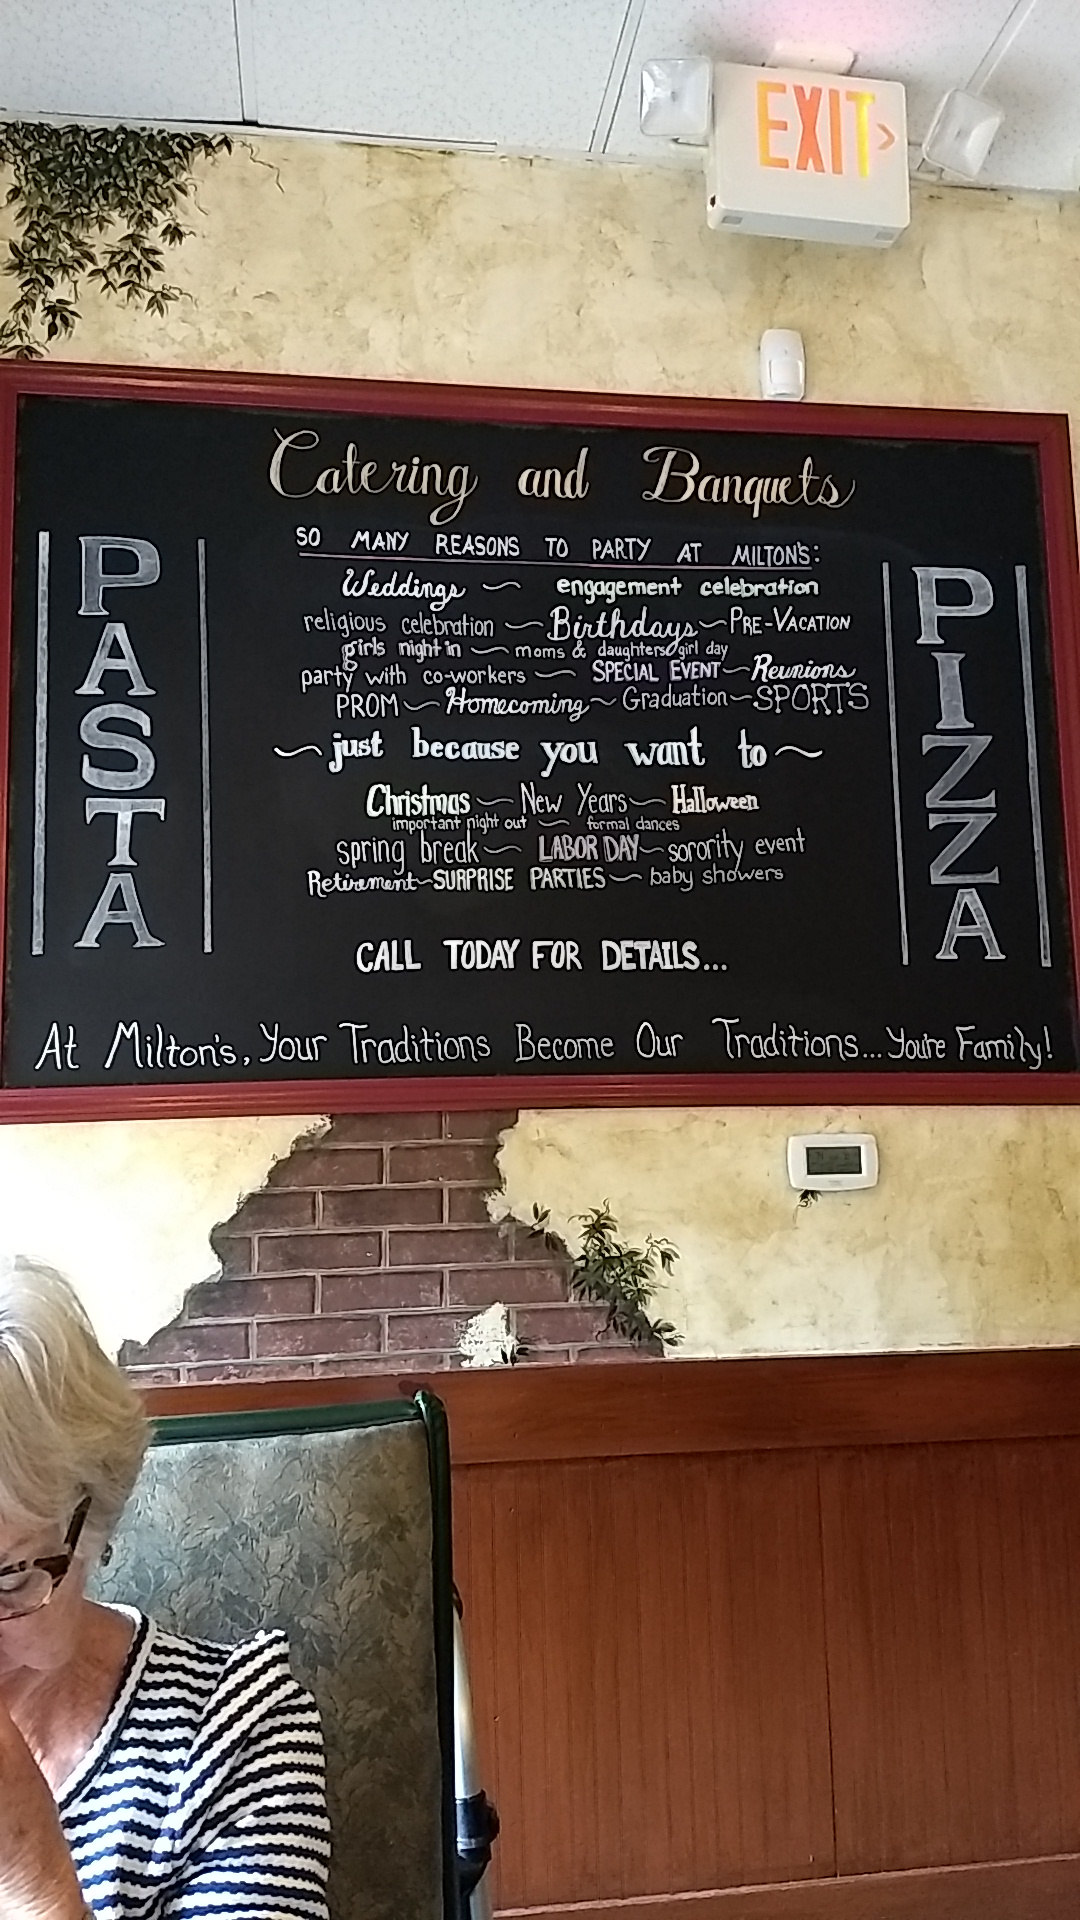 EXIT
Catering and Banquets
SO MANY REASONS TO PARTY AT MILTON'S:
Weddings ~ engagement celebration
religious celebration ~ Birthdays ~ PRE-VACATION
girls night in ~ moms & daughters/girl day
party with co-workers ~ SPECIAL EVENT ~ Reunions
PROM ~ Homecoming ~ Graduation ~ SPORTS
~ just because you want to ~
Christmas ~ New Years ~ Halloween
important night out ~ formal dances
spring break ~ LABOR DAY ~ sorority event
Retirement ~ SURPRISE PARTIES ~ baby showers
CALL TODAY FOR DETAILS...
PASTA
PIZZA
At Milton's, Your Traditions Become Our Traditions... You're Family!